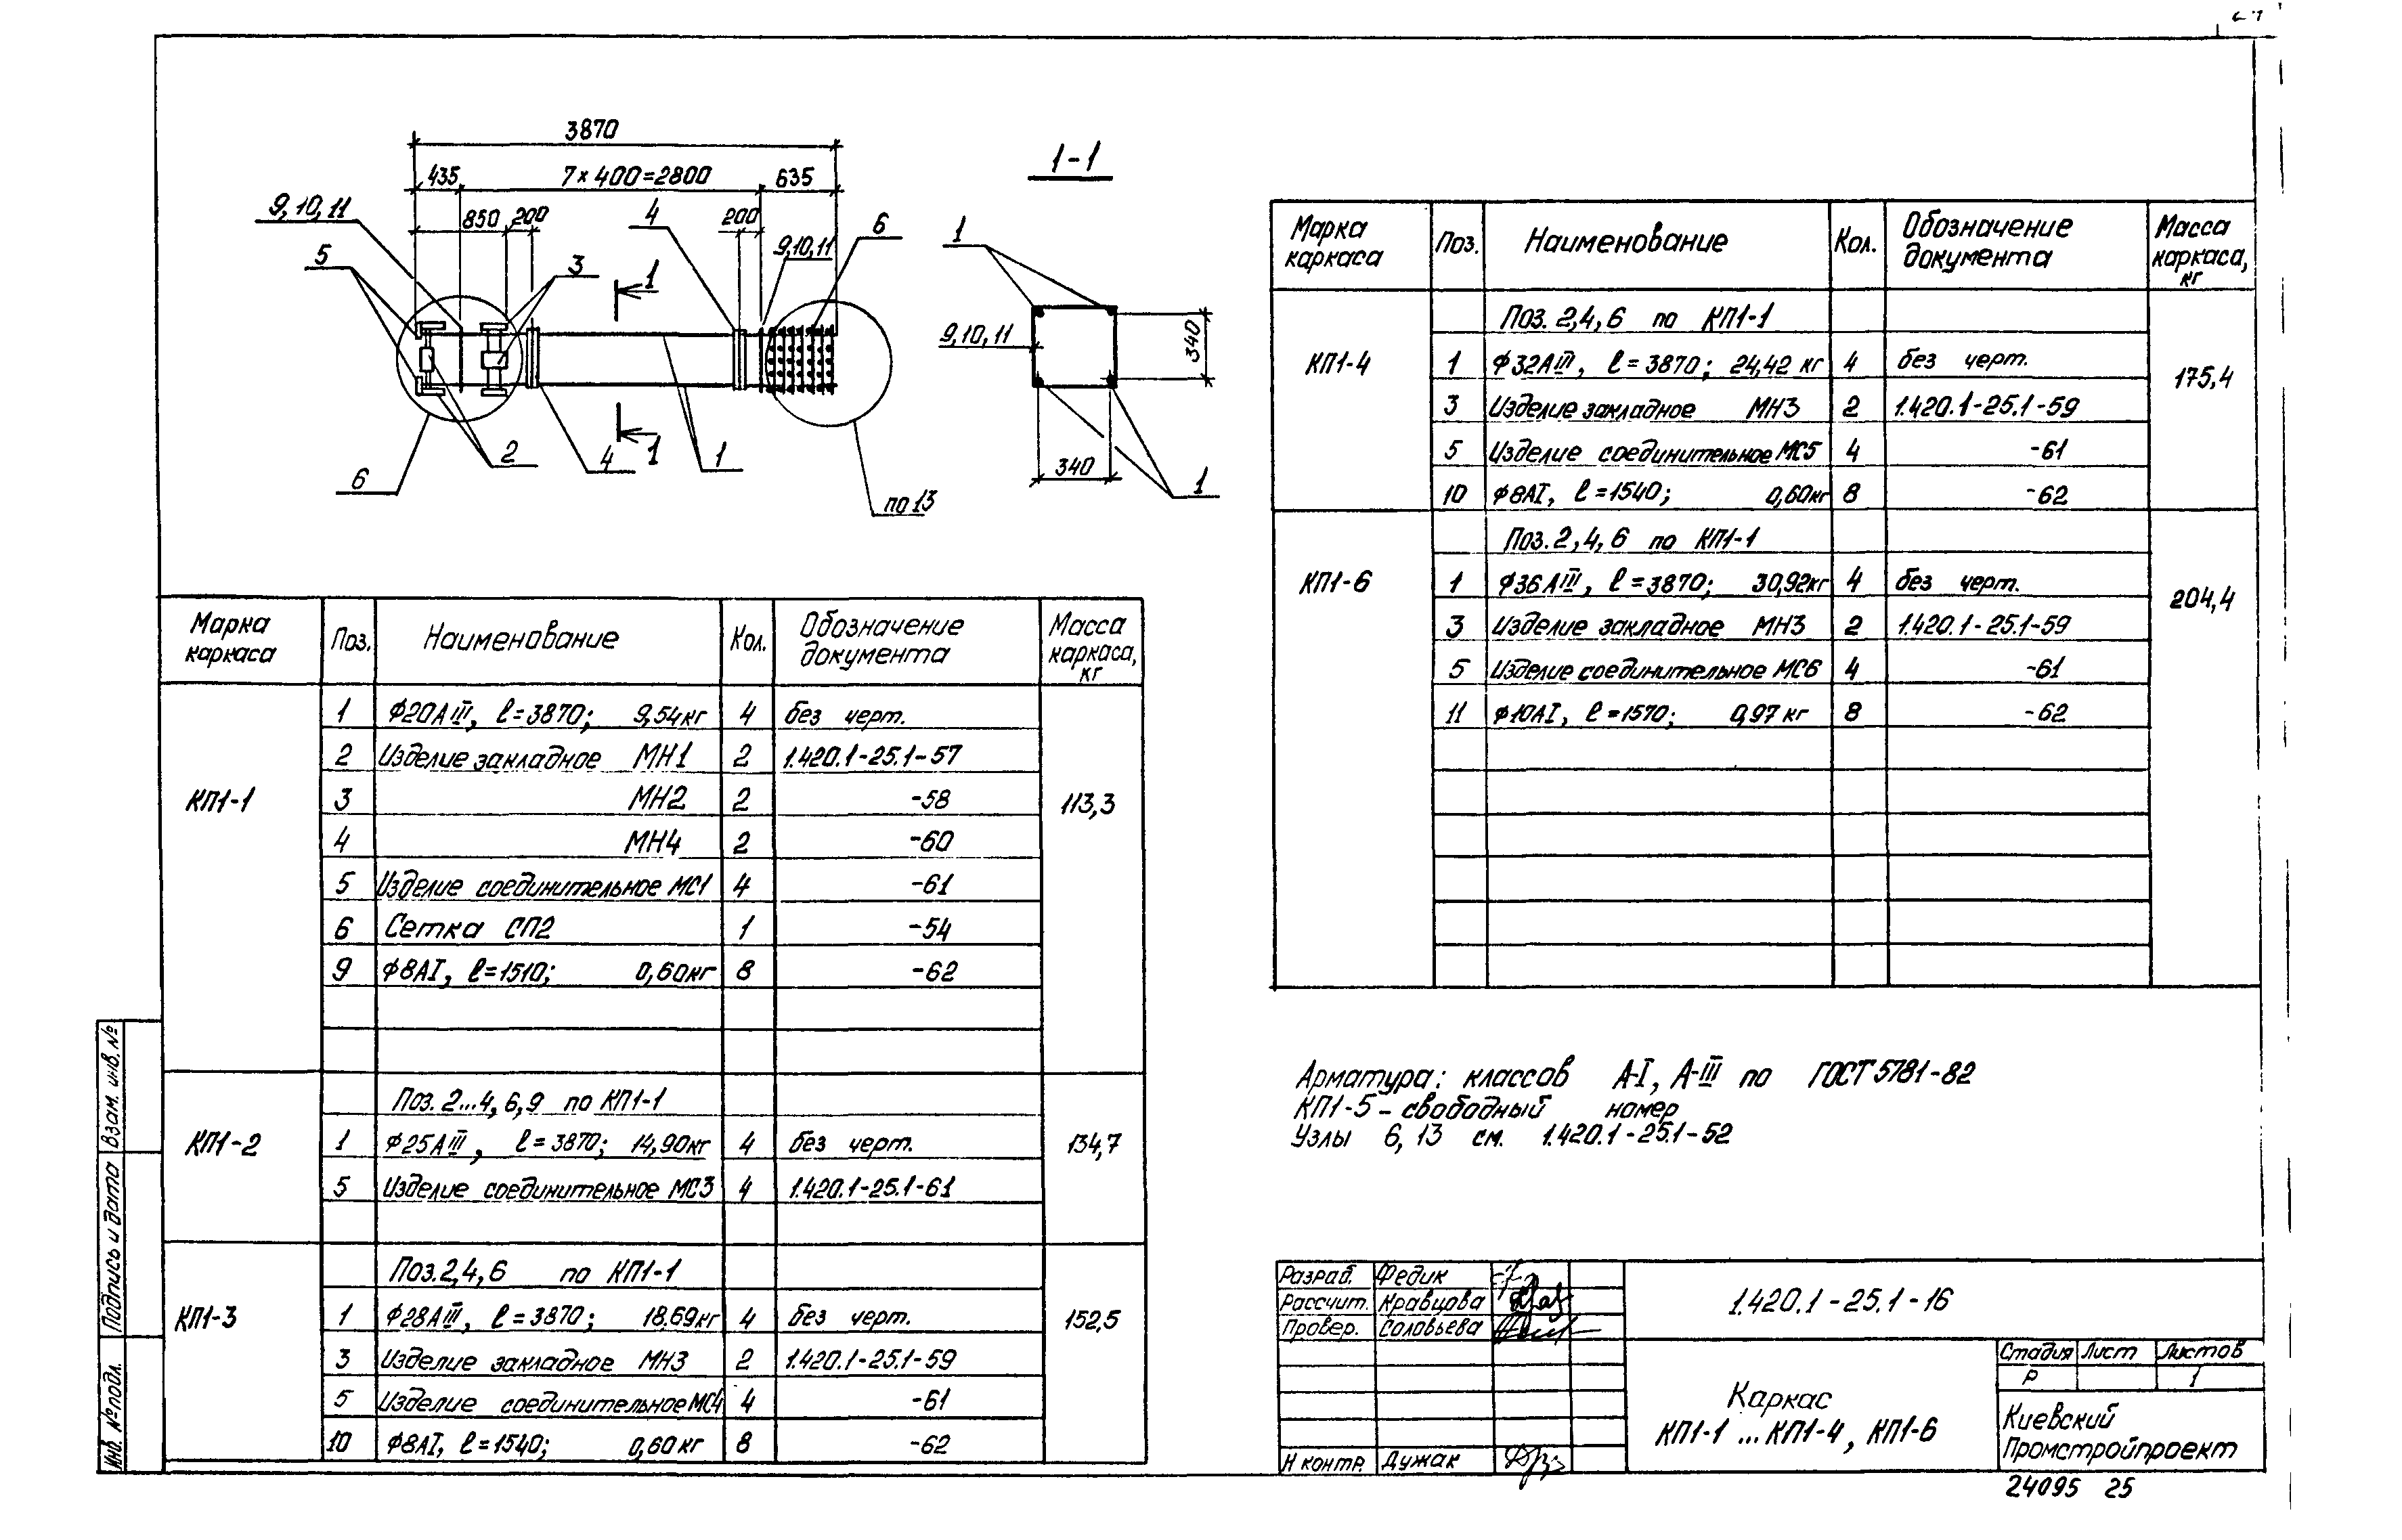 3870
435 7×400=2800 635
850 200 200
9,10,11
5
3
4
9,10,11
6
1
1
2
4
1
6
по 13
1-1
1
9,10,11
340
340
1
Марка каркаса Поз. Наименование Кол. Обозначение документа Масса каркаса, кг
КП1-1 113,3
1 ϕ20АIII, ℓ=3870; 9,54кг 4 без черт.
2 Изделие закладное МН1 2 1.420.1-25.1-57
3 МН2 2 -58
4 МН4 2 -60
5 Изделие соединительное МС1 4 -61
6 Сетка СП2 1 -54
9 ϕ8АI, ℓ=1510; 0,60кг 8 -62
КП1-2 134,7
Поз. 2...4, 6, 9 по КП1-1
1 ϕ25АIII, ℓ=3870; 14,90кг 4 без черт.
5 Изделие соединительное МС3 4 1.420.1-25.1-61
КП1-3 152,5
Поз. 2,4,6 по КП1-1
1 ϕ28АIII, ℓ=3870; 18,69кг 4 без черт.
3 Изделие закладное МН3 2 1.420.1-25.1-59
5 Изделие соединительное МС4 4 -61
10 ϕ8АI, ℓ=1540; 0,60кг 8 -62
Марка каркаса Поз. Наименование Кол. Обозначение документа Масса каркаса, кг
КП1-4 175,4
Поз. 2,4,6 по КП1-1
1 ϕ32АIII, ℓ=3870; 24,42 кг 4 без черт.
3 Изделие закладное МН3 2 1.420.1-25.1-59
5 Изделие соединительное МС5 4 -61
10 ϕ8АI, ℓ=1540; 0,60кг 8 -62
КП1-6 204,4
Поз. 2,4,6 по КП1-1
1 ϕ36АIII, ℓ=3870; 30,92кг 4 без черт.
3 Изделие закладное МН3 2 1.420.1-25.1-59
5 Изделие соединительное МС6 4 -61
11 ϕ10АI, ℓ=1570; 0,97 кг 8 -62
Арматура: классов А-I, А-III по ГОСТ 5781-82
КП1-5 - свободный номер
Узлы 6, 13 см. 1.420.1-25.1-52
Взам. инв. №
Подпись и дата
Инв. № подл.
Разраб. Федик
Рассчит. Кравцова
Провер. Соловьева
Н контр. Дужак
1.420.1-25.1-16
Каркас
КП1-1 ...КП1-4, КП1-6
Стадия Лист Листов
Р 1
Киевский
Промстройпроект
24095 25